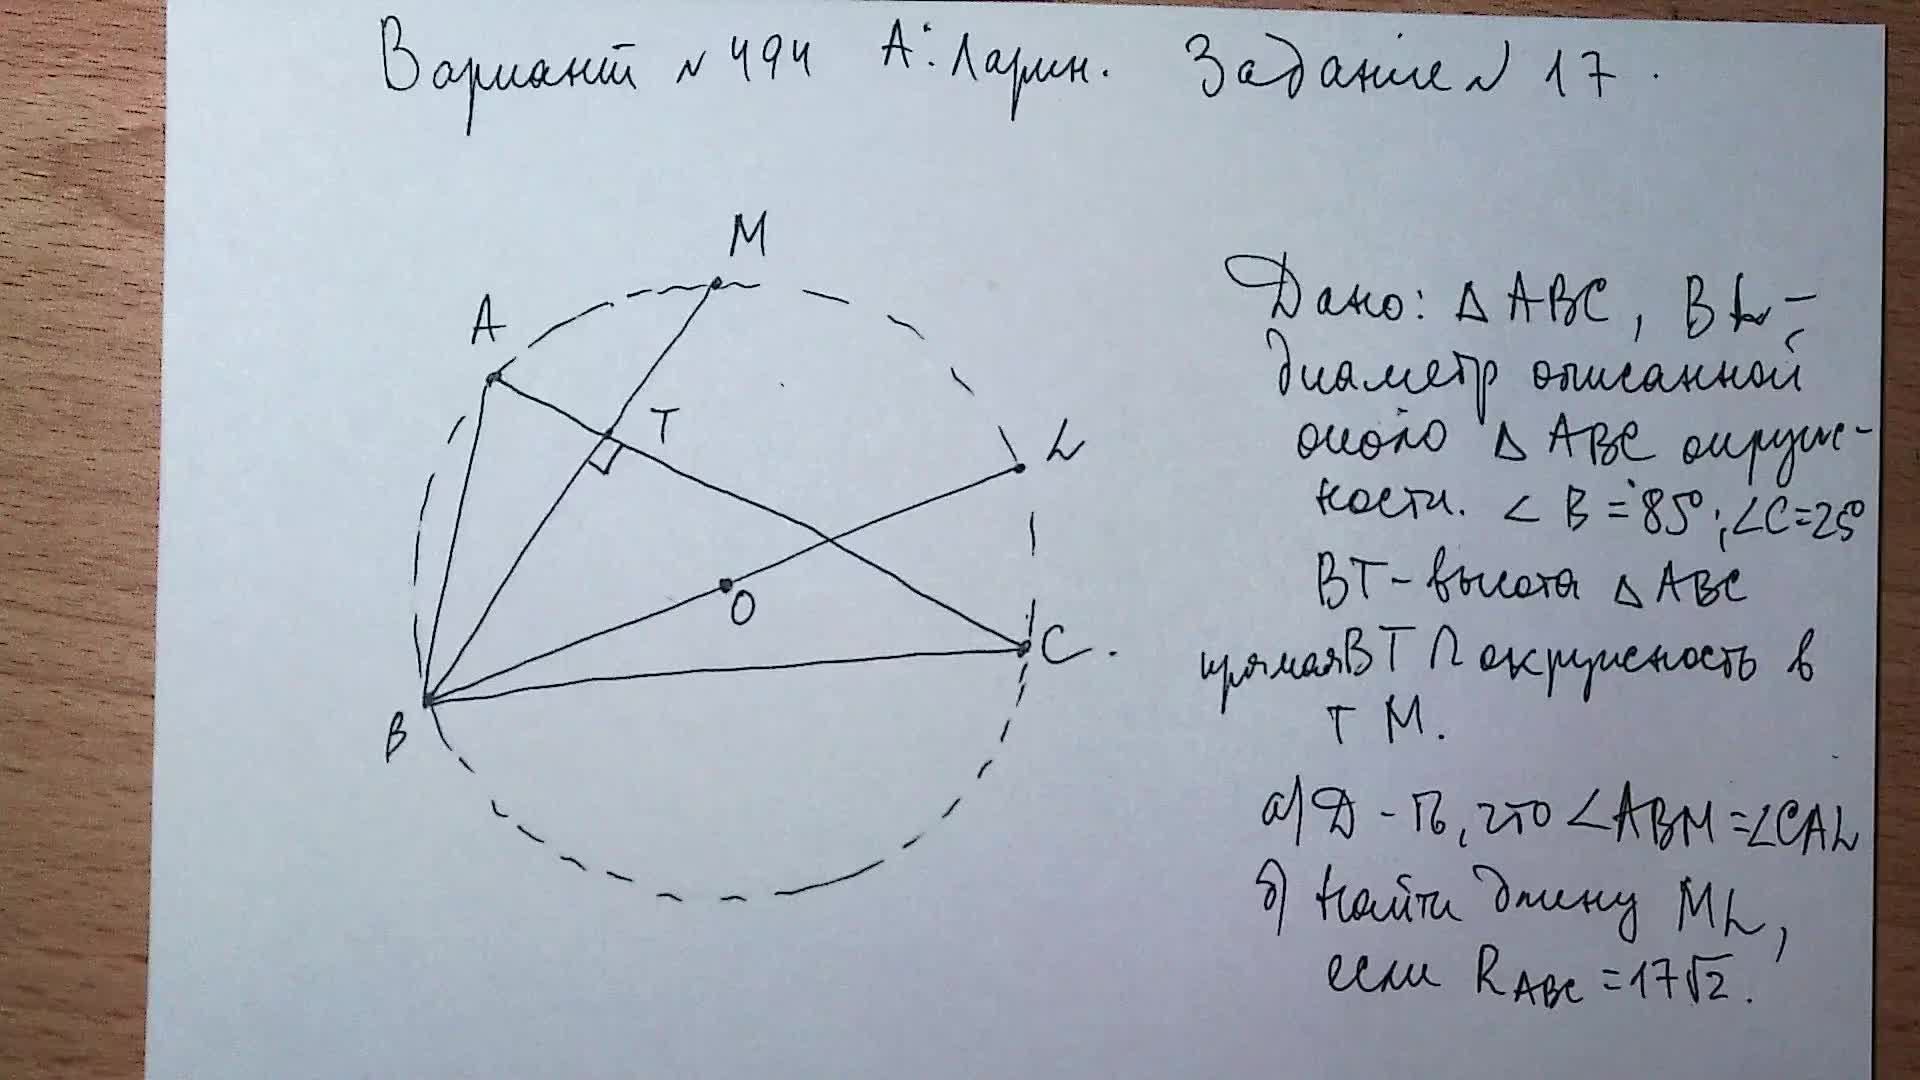 Вариант №494 А. Ларин. Задание №17.
M
A
T
L
O
C.
B
Дано: △ABC, BL –
диаметр описанной
около △ABC окруж-
ности. ∠B = 85°; ∠C=25°
BT – высота △ABC
прямая BT ∩ окружность в
т M.
а) Д-ть, что ∠ABM = ∠CAL
б) Найти длину ML,
если R ABC = 17√2.